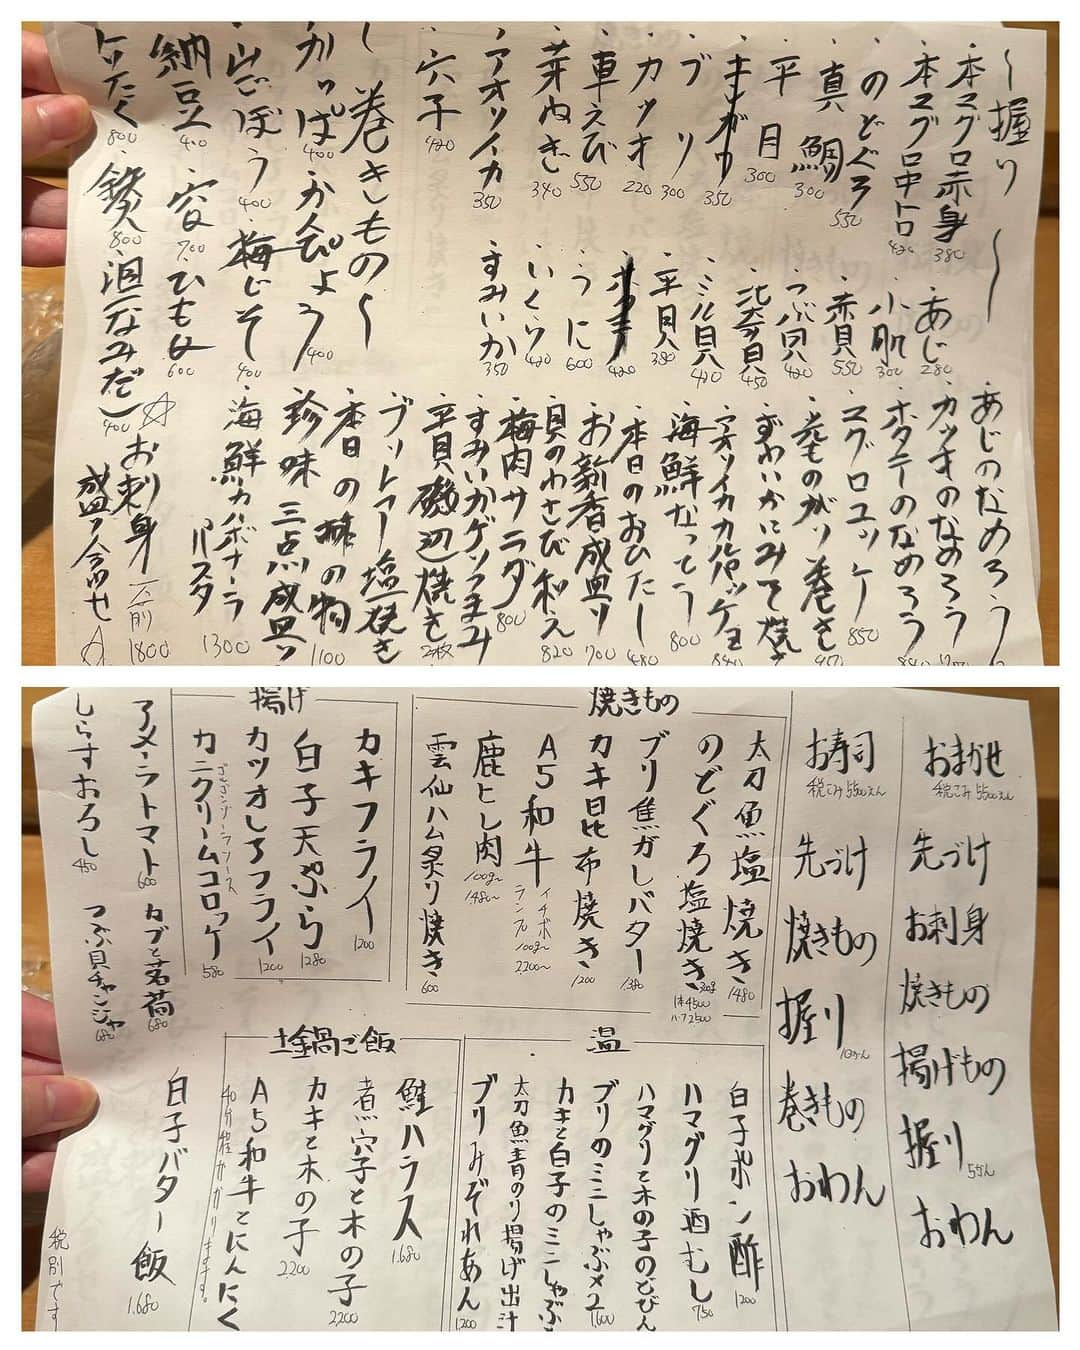 ～握り～
・本マグロ赤身 380
・本マグロ中トロ 420
・のどぐろ 550
・真鯛 300
・平目 300
350
・ブリ 300
・カツオ 220
・車えび 550
・芽ねぎ 340
・アオリイカ 350
・穴子 420
・あじ 280
・小肌 300
・赤貝 550
・つぶ貝 420
・北寄貝 450
・ミル貝 420
・平貝 380
420
・うに 600
・いくら 420
・すみいか 350
～巻きもの～
・かっぱ 400
・かんぴょう 400
・山ごぼう 400
・梅じそ 400
・納豆 400
・穴 700
・ひもきゅ 600
・トロたく 800
・鉄火 800
・涙(なみだ) 400
・あじのなめろう
・カツオのなめろう
・ホタテのなめろう
・マグロユッケ 850
・うにのり巻き
・ずわいかにみそ焼き
・アオリイカカルパッチョ
・海鮮なってう 800
・本日のおひたし 480
・お新香盛り 700
・貝のわさび和え 820
・梅肉サラダ 800
・すみいかゲソつまみ
・平貝磯辺焼き 2枚
・ブリトロ塩焼き
・本日の酢の物 1100
・珍味三点盛り
・海鮮カルボナーラパスタ 1300
☆お刺身盛り合わせ☆ 一人前 1800
おまかせ
税こみ 5500えん
先づけ
お刺身
焼きもの
揚げもの
握り 5かん
おわん
お寿司
税こみ 5500えん
先づけ
焼きもの
握り 10かん
巻きもの
おわん
焼きもの
太刀魚塩焼き 1480
のどぐろ塩焼き 300g 1本4500 ハーフ2500
ブリ焦がしバター 1380
カキ昆布焼き 1200
A5和牛 イチボ ランプ 100g〜 2200〜
鹿ヒレ肉 100g〜 1480〜
雲仙ハム炙り焼き 600
揚げ
カキフライ 1200
白子天ぷら 1280
カツオレアフライ 1200
カニクリームコロッケ ゴルゴンゾーラソース 580
アメーラトマト 600
しらすおろし 450
カブと茗荷 680
つぶ貝チャンジャ 680
温
白子ポン酢 1200
ハマグリ酒むし 750
ハマグリと木の子のどびん
ブリのミニしゃぶ×2 1,600
カキと白子のミニしゃぶ
太刀魚青のり揚げ出汁
ブリみぞれあん 1,200
土鍋ご飯
鮭ハラス 1.680
煮穴子と木の子 2200
カキと木の子 2200
A5和牛とにんにく
40分程かかります。
白子バター飯 1.680
税別です